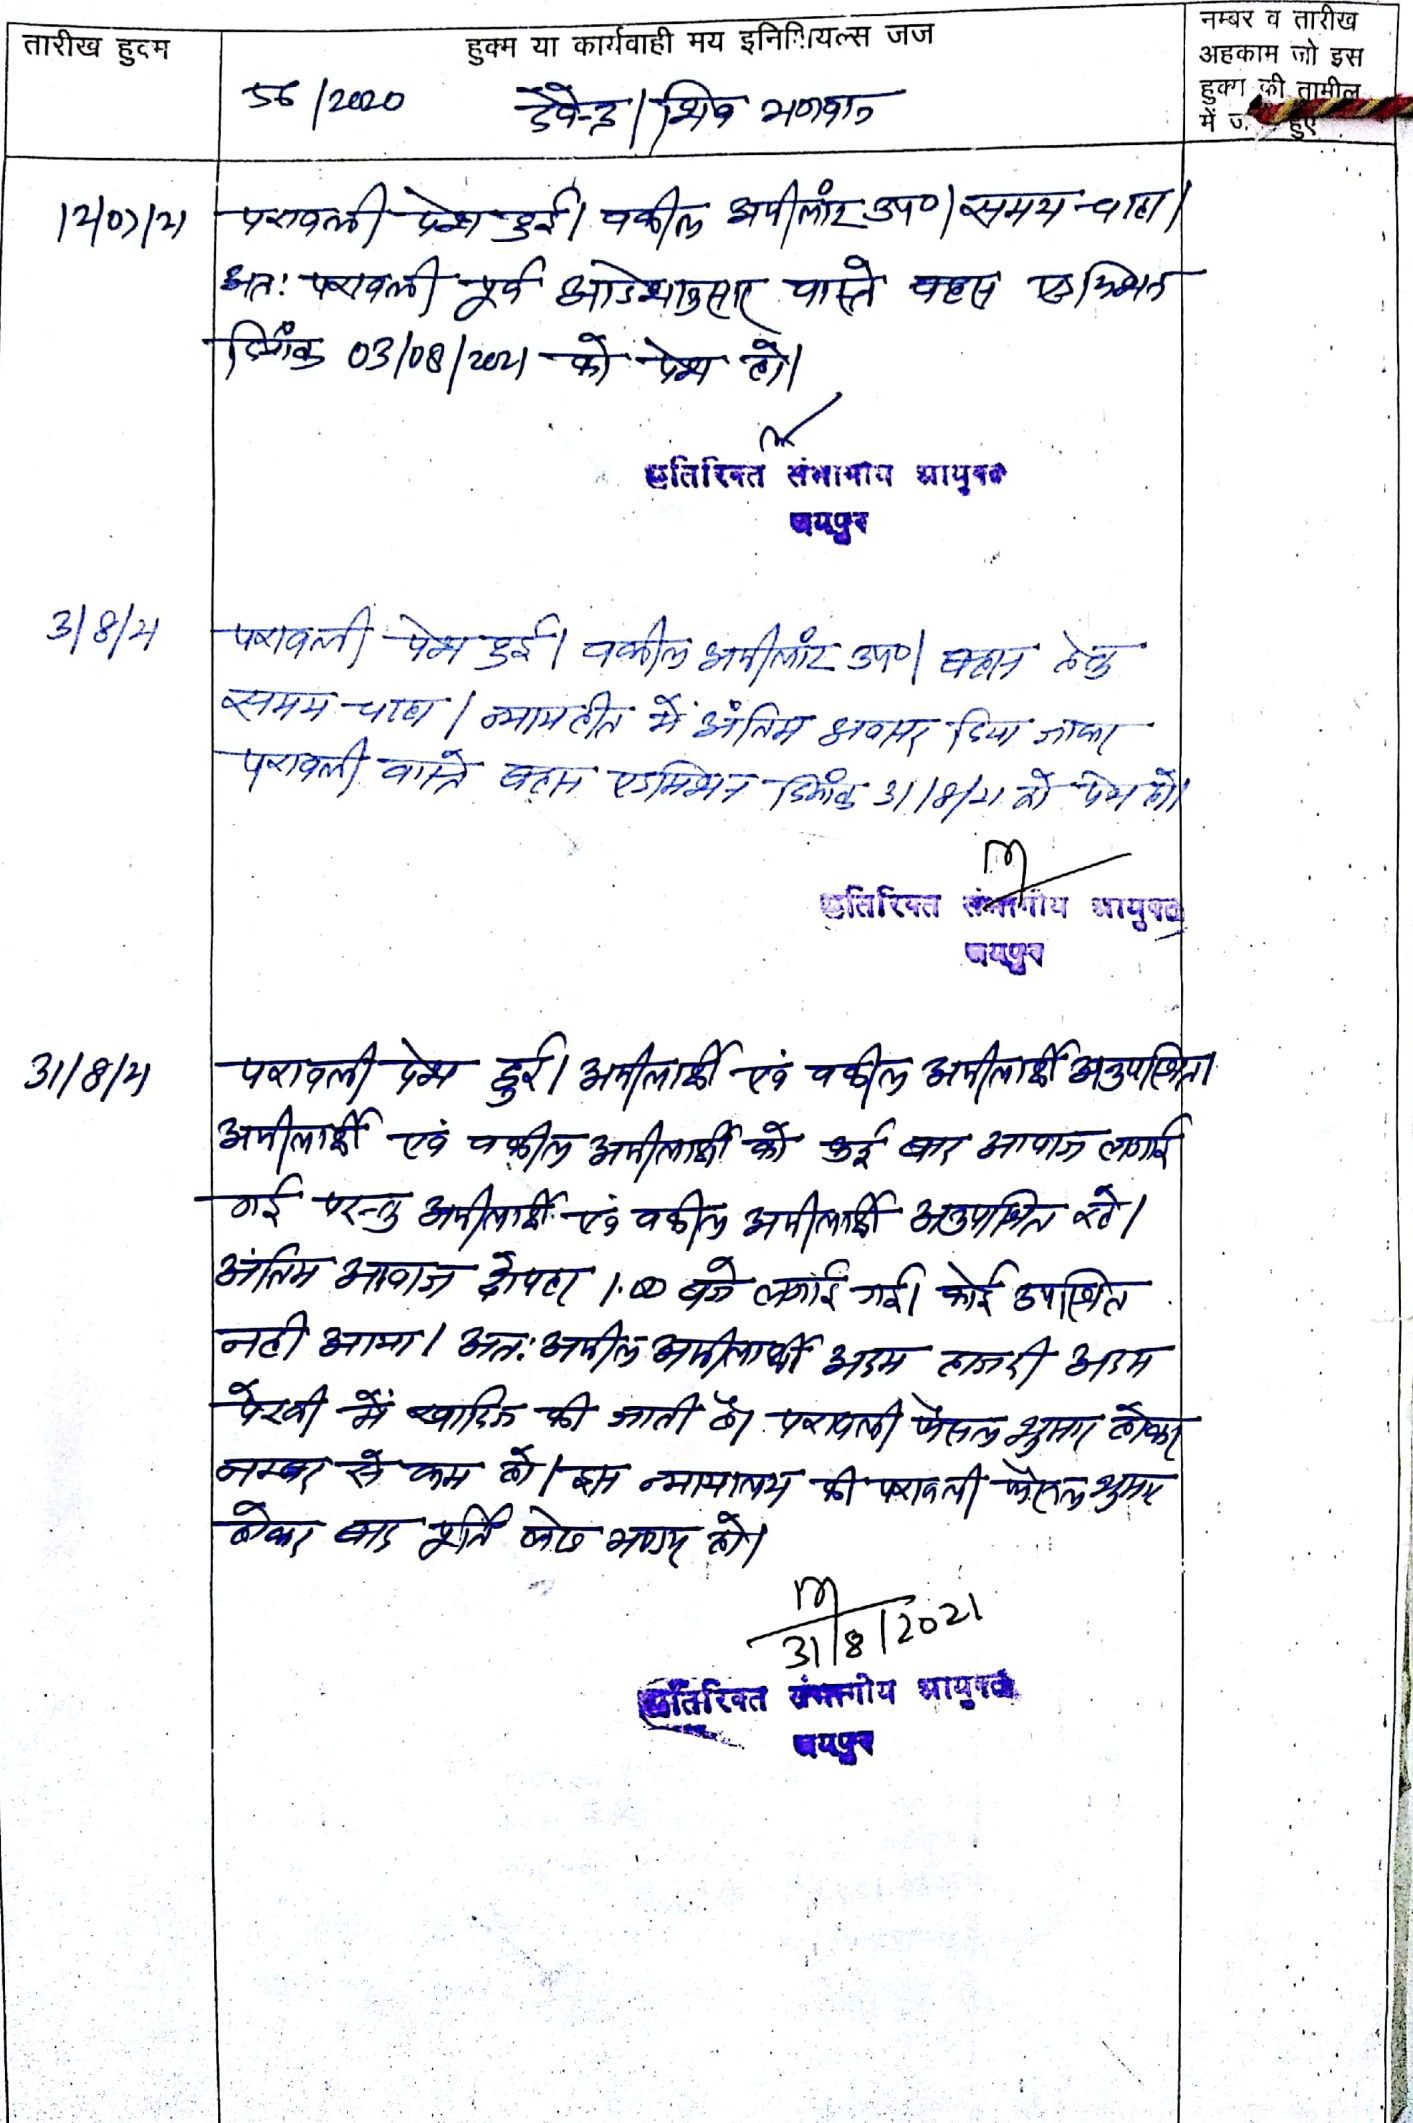 तारीख हुक्म
हुक्म या कार्यवाही मय इनिशियल्स जज
नम्बर व तारीख
अहकाम जो इस
हुक्म की तामील
में ज हुए
56/2020 देवेन्द्र/शिव भगवान
12/07/21 पत्रावली पेश हुई। वकील अपीलांट उप०। समय चाहा।
अतः पत्रावली पूर्व आदेशानुसार वास्ते बहस एडमिशन
दिनांक 03/08/2021 को पेश हो।
अतिरिक्त संभागीय आयुक्त
जयपुर
3/8/21 पत्रावली पेश हुई। वकील अपीलांट उप०। बहस हेतु
समय चाहा। न्यायहित में अंतिम अवसर दिया जाकर
पत्रावली वास्ते बहस एडमिशन दिनांक 31/8/21 को पेश हो।
अतिरिक्त संभागीय आयुक्त
जयपुर
31/8/21 पत्रावली पेश हुई। अपीलार्थी एवं वकील अपीलार्थी अनुपस्थित।
अपीलार्थी एवं वकील अपीलार्थी को कई बार आवाज लगाई
गई परन्तु अपीलार्थी एवं वकील अपीलार्थी अनुपस्थित रहे।
अंतिम आवाज दोपहर 1.00 बजे लगाई गई। कोई उपस्थित
नही आया। अतः अपील अपीलार्थी अदम हाजरी अदम
पैरवी में खारिज की जाती है। पत्रावली फैसल शुमार होकर
नम्बर से कम हो। इस न्यायालय की पत्रावली फैसल शुमार
होकर बाद पूर्ति लेख भण्डार हो।
31/8/2021
अतिरिक्त संभागीय आयुक्त
जयपुर